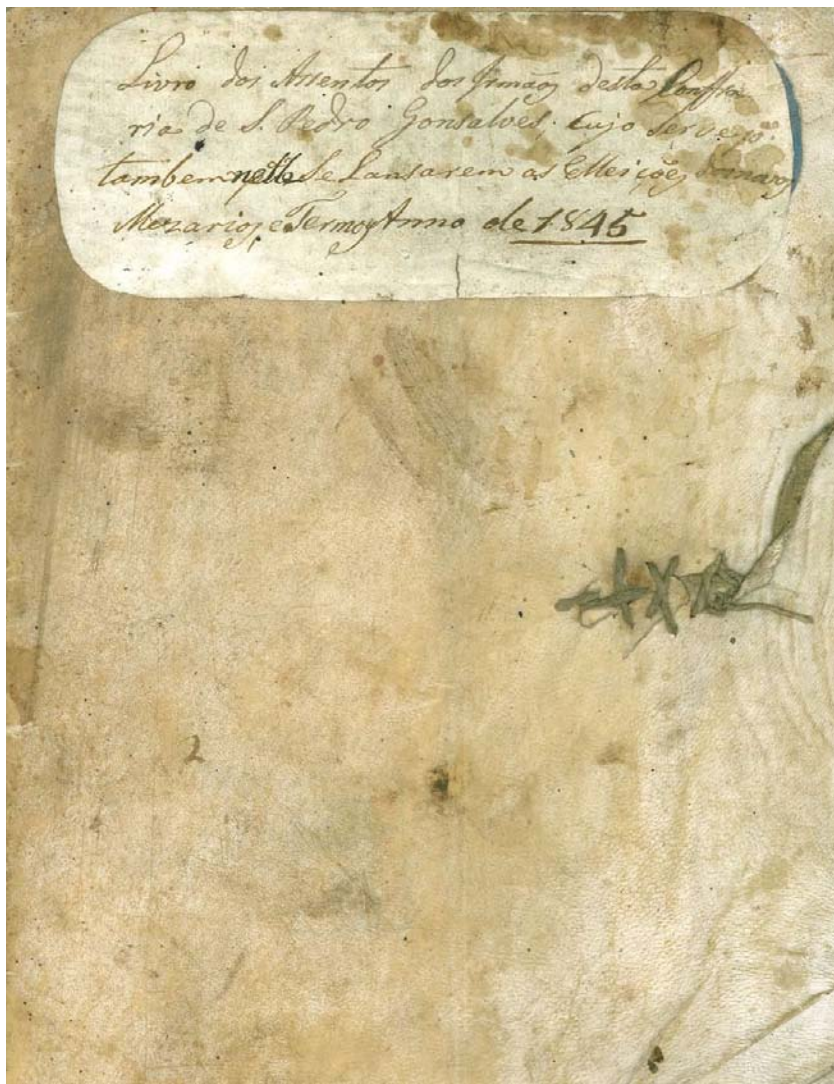 Livro dos Assentos dos Irmãos desta Confra
ria de S. Pedro Gonsalves. Cujo Serve p.ª
tambem nelle Se Lansarem as Elleições
Mezarios, e Termos Anno de 1845
2